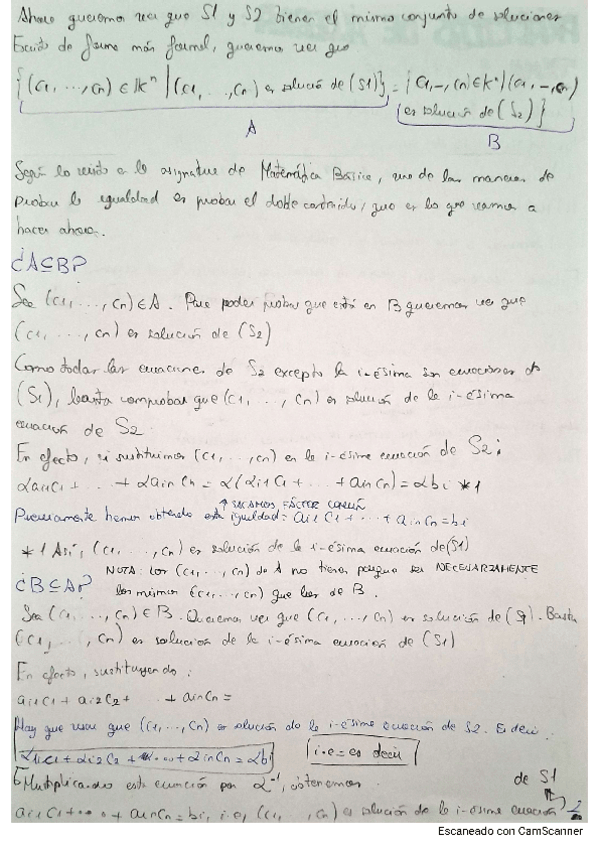 Ahora queremos ver que S1 y S2 tienen el mismo conjunto de soluciones
Escrito de forma más formal, queremos ver que
{(c1, ..., cn) ∈ Kⁿ | (c1, ..., cn) es solució de (S1)} = {(c1, -, cn) ∈ Kⁿ | (c1, -, cn)
es solución de (S2)}
A
B
Según lo visto a la asignatura de Matemática Básica, una de las maneras de
probar la igualdad es probar el doble contenido, que es lo que vamos a
hacer ahora.
¿A⊆B?
Sea (c1, ..., cn) ∈ A. Para poder probar que está en B queremos ver que
(c1, ..., cn) es solución de (S2)
Como todas las ecuaciones de S2 excepto la i-ésima son ecuaciones de
(S1), basta comprobar que (c1, .., cn) es solución de la i-ésima
ecuación de S2.
En efecto, si sustituimos (c1, ..., cn) en la i-ésima ecuación de S2:
αai1c1 + ... + αaincn = α(ai1c1 + ... + aincn) = αbi *1
↑ SACAMOS FACTOR COMÚN
Previamente hemos obtenido esta igualdad: ai1c1 + ... + aincn = bi
*1 Así, (c1, ..., cn) es solución de la i-ésima ecuación de (S1)
NOTA: Los (c1, ..., cn) de A no tienen porque ser NECESARIAMENTE
los mismos (c1, ..., cn) que los de B.
¿B⊆A?
Sea (c1, ..., cn) ∈ B. Queremos ver que (c1, ..., cn) es solución de (S1). Basta
(c1, ..., cn) es solución de la i-ésima ecuación de (S1)
En efecto, sustituyendo:
ai1c1 + ai2c2 + ... + aincn =
Hay que usar que (c1, ..., cn) es solución de la i-ésima ecuación de S2. Es decir
i.e = es decir
Multiplicando esta ecuación por α⁻¹, obtenemos
de S1
ai1c1 + ... + aincn = bi, i.e, (c1, ..., cn) es solución de la i-ésima ecuación
Escaneado con CamScanner